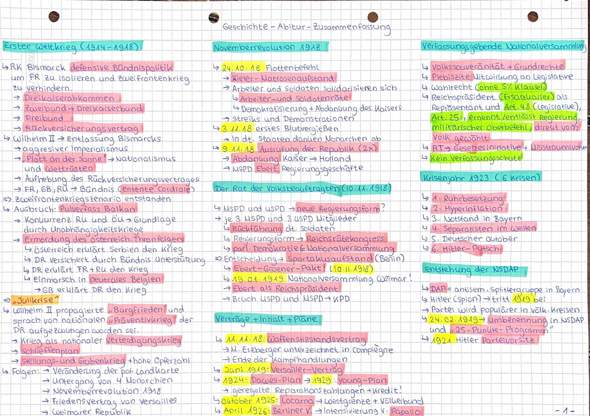 Geschichte-Abitur-Zusammenfassung
Erster Weltkrieg (1914-1918)
↳ RK Bismarck defensive Bündnispolitik
um FR zu isolieren und Zweifrontenkrieg
zu verhindern.
→ Dreikaiserabkommen
→ Zweibund → Dreikaiserbund
→ Dreibund
→ Rückversicherungsvertrag
↳ Wilhelm II → Entlassung Bismarcks
→ aggressiver Imperialismus
→ "Platz an der Sonne" → Nationalismus
und Wettrüsten
→ Aufhebung des Rückversicherungsvertrages
→ FR, GB, RU → Bündnis (entente Cordiale)
⇒ Zweifrontenkriegszenario entstanden
↳ Ausbruch: Pulverfass Balkan
→ Konkurrent RU und ÖU → Grundlage
durch Unabhängigkeitskriege
→ Ermordung des österreich. Thronfolgers
↳ Österreich erklärt Serbien den Krieg
↳ DR versichert durch Bündnis Unterstützung
↳ DR erklärt FR + RU den Krieg
→ Einmarsch in neutrales Belgien
↳ GB erklärt DR den Krieg
⇒ "Julikrise"
↳ Wilhelm II propagierte "Burgfrieden" und
sprach von nationalen "Defensivkrieg" der
DR aufgezwungen worden sei.
→ Krieg als nationaler Verteidigungskrieg
→ Schlieffenplan
→ Stellungs- und Grabenkrieg → hohe Opferzahl
↳ Folgen: → Veränderung der pol. Landkarte
→ Untergang von 4 Monarchien
→ Novemberrevolution 1918
→ Friedensvertrag von Versailles
→ Weimarer Republik
Novemberrevolution 1918
↳ 24.10.18 Flottenbefehl
↳ Kieler-Matrosenaufstand
→ Arbeiter und Soldaten solidarisieren sich
↳ Arbeiter- und Soldatenräte
→ Demokratisierung + Abdankung des Kaisers
→ Streiks und Demonstrationen
↳ 3.11.18 erstes Blutvergießen
→ in dt. Staaten danken Monarchen ab
↳ 9.11.18 Ausrufung der Republik (2x)
↳ Abdankung Kaiser → Holland
→ MSPD Ebert Regierungsgeschäfte
Der Rat der Volksbeauftragten (10.11.1918)
↳ MSPD und USPD → neue Regierungsform?
→ je 3 MSPD und 3 USPD Mitglieder
↳ Rückführung dt. Soldaten
↳ Regierungsform → Reichsrätekongress
↳ parl. Demokratie & Nationalversammlung
⇒ Entscheidung → Spartakusaufstand (Berlin)
↳ Ebert-Groener-Pakt! (10.11.1918)
↳ 19.01.1919 Nationalversammlung Weimar!
↳ Ebert als Reichspräsident
→ Bruch USPD und MSPD → KPD
Verträge + Inhalt + Pläne
↳ 11.11.18: Waffenstillstandsvertrag
→ M. Erzberger unterzeichnet in Compiègne
→ Ende der Kampfhandlungen
↳ Juni 1919: Versailler-Vertrag
↳ 1924: Dawes-Plan → 1929: Young-Plan
→ geregelte Reparationszahlungen + Kredite!
↳ Oktober 1925: Locarno → Westgrenze + Völkerbund
↳ April 1926: Berliner V. → Intensivierung v. Rapallo
Verfassungsgebende Nationalversammlung
↳ Volkssouveränität + Grundrechte
↳ Plebiszite Mitwirkung an Legislative
↳ Wahlrecht (ohne 5% Klausel)
↳ Reichspräsident (Ersatzkaiser) als
Repräsentant und Art. 48 (Legislative),
Art. 25, ernennt/entlässt Regierung,
militärischer Oberbefehl, direkt vom
Volk gewählt
↳ RT → Gesetzesinitiative + Misstrauensvotum
↳ Kein Verfassungsschutz
Krisenjahr 1923 (6 Krisen)
↳ 1. Ruhrbesetzung
↳ 2. Hyperinflation
↳ 3. Notstand in Bayern
↳ 4. Separatisten im Westen
↳ 5. Deutscher Oktober
↳ 6. Hitler-Putsch
Entstehung der NSDAP
↳ DAP = antisem. Splittergruppe in Bayern
↳ Hitler (Spion) → tritt 1919 bei
↳ Partei wird populärer in völk. Kreisen
↳ 24.02.1919 → Umbenennung in NSDAP
und "25-Punkte-Programm"
↳ 1921 Hitler Parteivorsitz
- 1 -